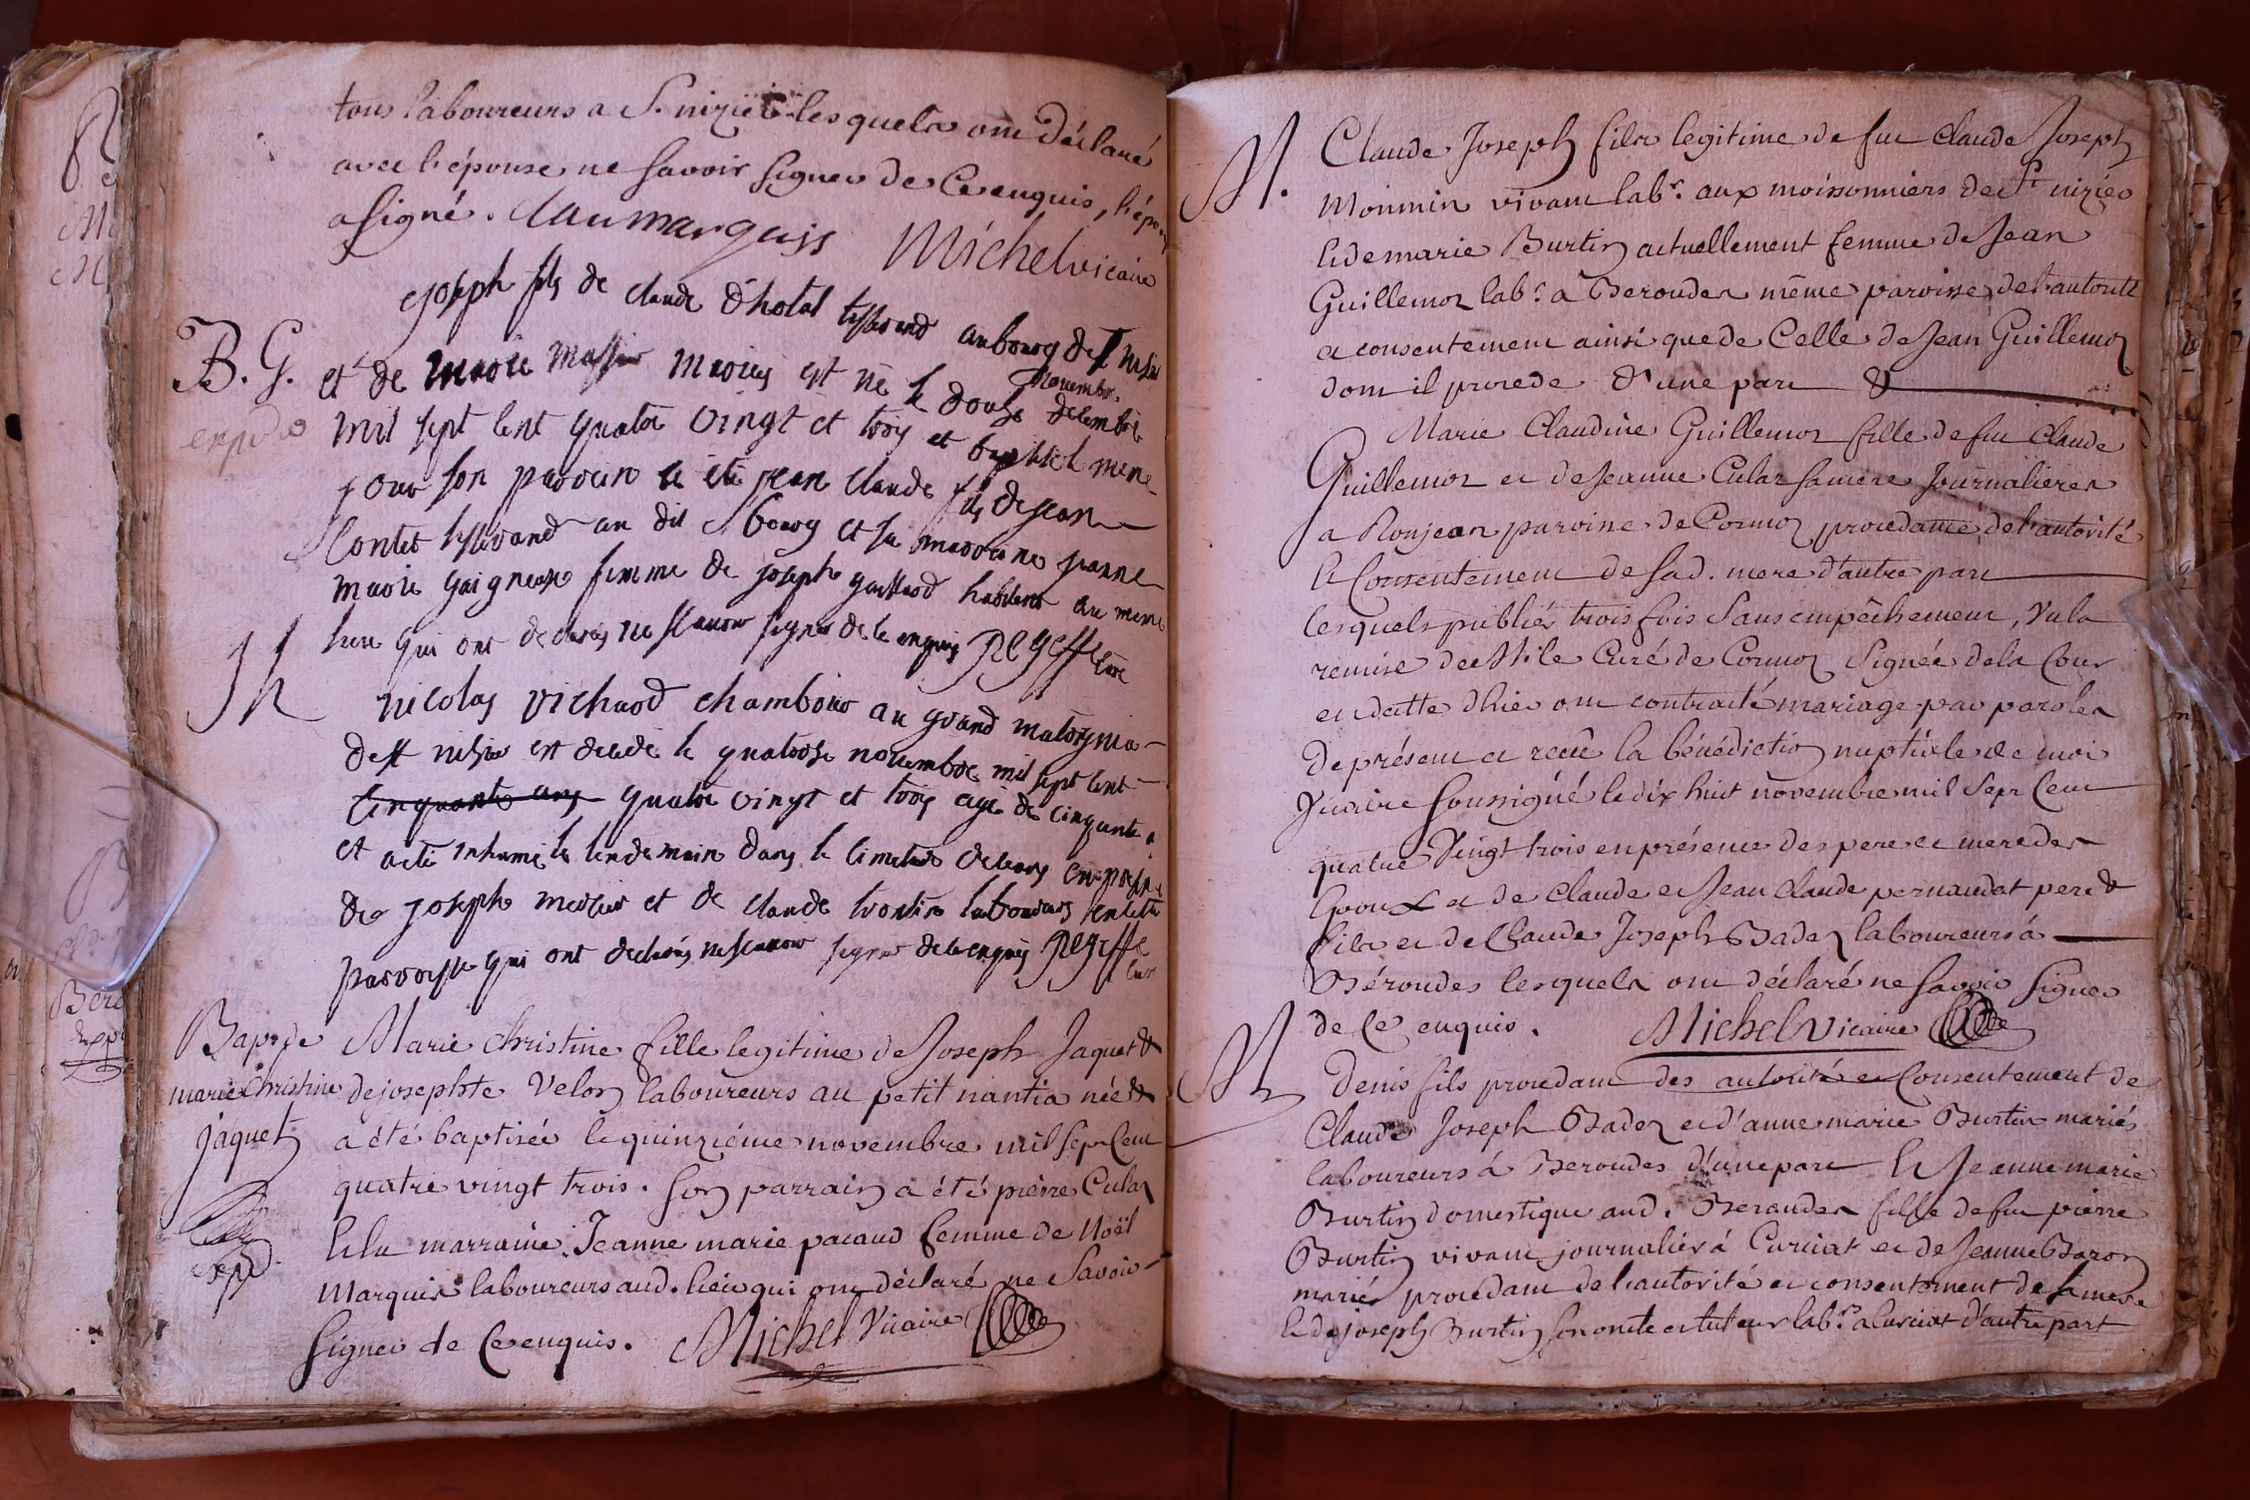 tous laboureurs a St. nizier lesquels ont déclaré
avec l'épouse ne savoir signer de ce enquis, l'époux
a signé. Claumarquis Michel vicaire
B. G.
joseph fils de claude d'hotal tisserand au bourg de St nisie
et de marie massier mariés est né le douze decembre
novembre
mil sept cent quatre vingt et trois et baptisé le meme
pour son parrain a été jean claude fils de jean
Contet tisserand au dit bourg et sa marraine jeanne
marie gaigneaux femme de joseph gaillard habitants au meme
lieu qui ont declarés ne scavoir signer de ce enquis
nicolas vichard chamboir au grand
de st nisier est decedé le quatorze novembre mil sept cent
cinquante ans quatre vingt et trois agé de cinquante a
et a eté inhumé le lendemain dans le cimetiere en
de joseph mercier et de claude laboureurs
parroisse qui ont declarés ne scavoir signer de ce enquis
Bap. de
marie Christine
jaquet
Marie Christine fille legitime de Joseph Jaquet &
de josephte Velon laboureurs au petit nantia née &
a été baptisée le quinziéme novembre mil sept cent
quatre vingt trois. son parrain a été pierre Culaz
et la marraine Jeanne marie pacaud femme de Noël
Marquis laboureurs aud. lieu qui ont déclaré ne savoir
signer de ce enquis. Michel Vicaire
M.
Claude Joseph fils legitime de feu Claude Joseph
Monnin vivant labr. aux moissonniers de St nizier
et de marie Burtin actuellement femme de Jean
Guillemoz labr. à Beroudes même paroisse, de l'autorité
et consentement ainsi que de Celle de Jean Guillemoz
dont il procede d'une part &
Marie Claudine Guillemoz fille de feu Claude
Guillemoz et de Jeanne Culaz sa mere Journalieres
a Roujean paroisse de Cormoz procedante de l'autorité
et Consentement de sad. mere d'autre part
lesquels publiés trois fois sans empêchement, vu la
remise de Mr le Curé de Cormoz signée de la Cour
en datte d'hier ont contracté mariage par paroles
de présent et recû la bénédiction nuptiale de moi
Vicaire soussigné le dix huit novembre mil sept cent
quatre vingt trois en présence des pere et mere des
Epoux et de Claude et Jean Claude pernaudat pere &
fils et de Claude Joseph Badez laboureurs á
Béroudes lesquels ont déclaré ne savoir signer
de ce enquis. Michel Vicaire
M
Denis fils procedant des autorité et Consentement de
Claude Joseph Badez et d'anne marie Burtin mariés
laboureurs á Beroudes d'une part Et Jeanne marie
Burtin domestique aud. Beroudes fille de feu pierre
Burtin vivant journalier á Curciat et de Jeanne Baron
mariés procedant de l'autorité et consentement de sa mere
et de joseph Burtin son oncle et tuteur labr. a Curciat d'autre part